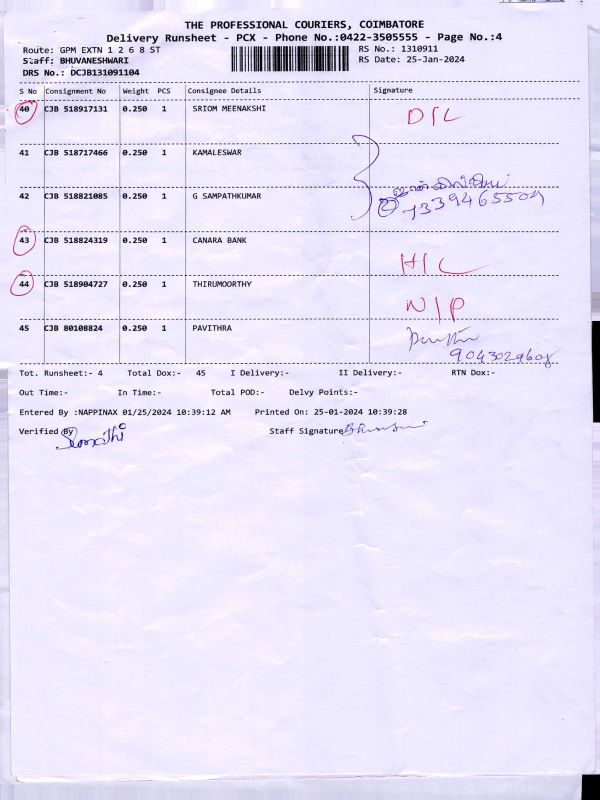 THE PROFESSIONAL COURIERS, COIMBATORE
Delivery Runsheet - PCX - Phone No.:0422-3505555 - Page No.:4
Route: GPM EXTN 1 2 6 8 ST RS No.: 1310911
Staff: BHUVANESHWARI RS Date: 25-Jan-2024
DRS No.: DCJB131091104
S No Consignment No Weight PCS Consignee Details Signature
40 CJB 518917131 0.250 1 SRIOM MEENAKSHI D/L
41 CJB 518717466 0.250 1 KAMALESWAR
42 CJB 518821085 0.250 1 G SAMPATHKUMAR
43 CJB 518824319 0.250 1 CANARA BANK H/L
44 CJB 518904727 0.250 1 THIRUMOORTHY N/P
45 CJB 80108824 0.250 1 PAVITHRA
Tot. Runsheet:- 4 Total Dox:- 45 I Delivery:- II Delivery:- RTN Dox:-
Out Time:- In Time:- Total POD:- Delvy Points:-
Entered By :NAPPINAX 01/25/2024 10:39:12 AM Printed On: 25-01-2024 10:39:28
Verified By Sumathi Staff Signature